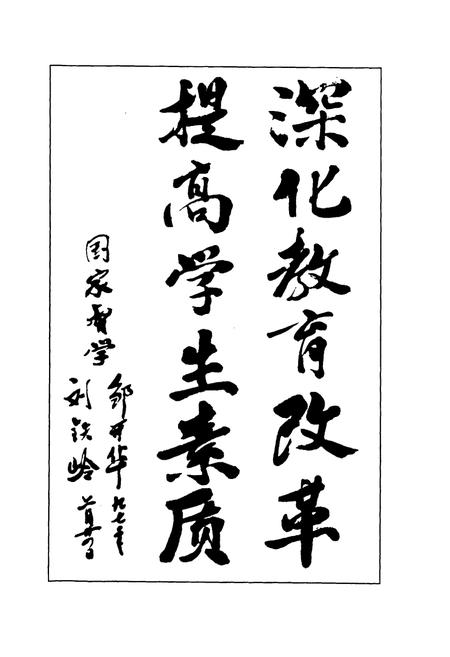 深化教育改革
提高学生素质
国家督学
邹开华 九七年
刘铁岭